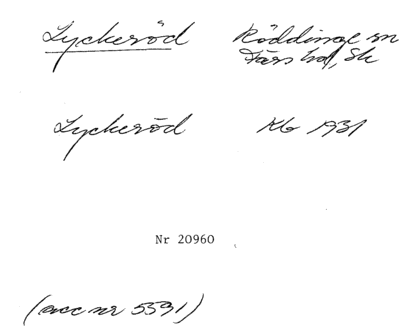 Lyckeröd Röddinge sn
Färs hd, Sk
Lyckeröd Kb 1931
Nr 20960
(acc nr 5591)